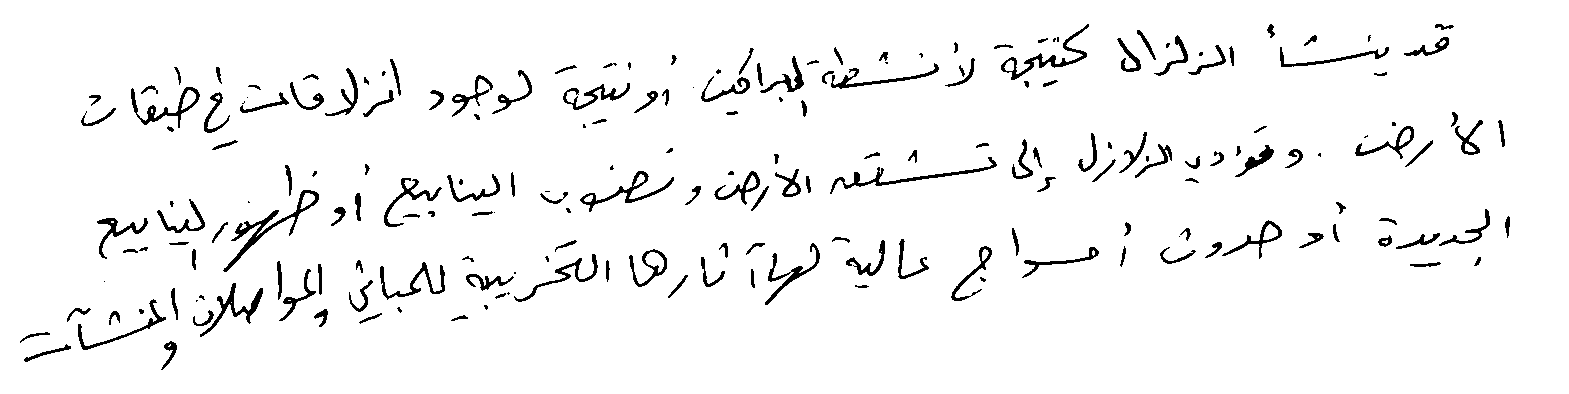 قد ينشأ الزلزال كنتيجة لأنشطة البراكين أو نتيجة لوجود انزلاقات في طبقات
الأرض . وتؤدي الزلازل إلى تشقق الأرض ونضوب الينابيع أو ظهور الينابيع
الجديدة أو حدوث أمواج عالية لها آثارها التخريبية للمباني والمواصلات والمنشآت